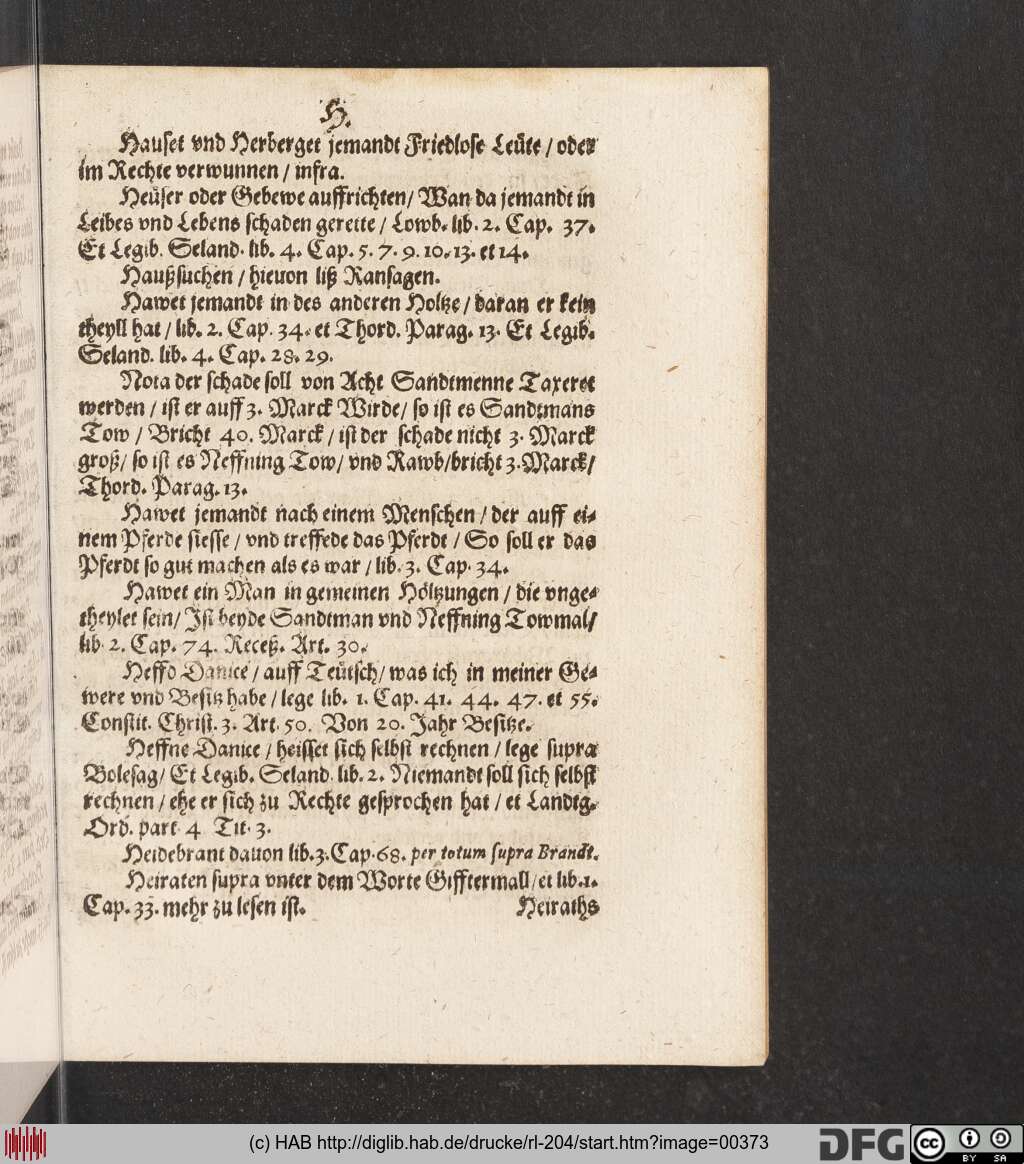 H.
Hauset vnd Herberget jemandt Friedlose Leüte / oder
im Rechte verwunnen / infra.
Heüser oder Gebewe auffrichten / Wan da jemandt in
Leibes vnd Lebens schaden geriete / Lowb. lib. 2. Cap. 37.
Et Legib. Seland. lib. 4. Cap. 5. 7. 9. 10. 13. et 14.
Haußsuchen / hieuon liß Ransagen.
Hawet jemandt in des anderen Holtze / daran er kein
theyll hat / lib. 2. Cap. 34. et Thord. Parag. 13. Et Legib.
Seland. lib. 4. Cap. 28. 29.
Nota der schade soll von Acht Sandtmenne Taxeret
werden / ist er auff 3. Marck Wirde / so ist es Sandtmans
Tow / Bricht 40. Marck / ist der schade nicht 3. Marck
groß / so ist es Neffning Tow / vnd Rawb / bricht 3. Marck /
Thord. Parag. 13.
Hawet jemandt nach einem Menschen / der auff ei-
nem Pferde siesse / vnd treffede das Pferdt / So soll er das
Pferdt so gut machen als es war / lib. 3. Cap. 34.
Hawet ein Man in gemeinen Höltzungen / die vnge-
theylet sein / Ist beyde Sandtman vnd Neffning Towmal /
lib. 2. Cap. 74. Receß. Art. 30.
Heffd Danice / auff Teütsch / was ich in meiner Ge-
were vnd Besitz habe / lege lib. 1. Cap. 41. 44. 47. et 55.
Constit. Christ. 3. Art. 50. Von 20. Jahr Besitze.
Heffne Danice / heisset sich selbst rechnen / lege supra
Bolesag / Et Legib. Seland. lib. 2. Niemandt soll sich selbst
rechnen / ehe er sich zu Rechte gesprochen hat / et Landtg.
Ord. part. 4 Tit. 3.
Heidebrant dauon lib. 3. Cap. 68. per totum supra Brandt.
Heiraten supra vnter dem Worte Gifftermall / et lib. 1.
Cap. 33. mehr zu lesen ist. Heiraths
(c) HAB http://diglib.hab.de/drucke/rl-204/start.htm?image=00373
DFG cc BY SA